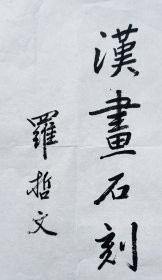 漢畫石刻
羅哲文